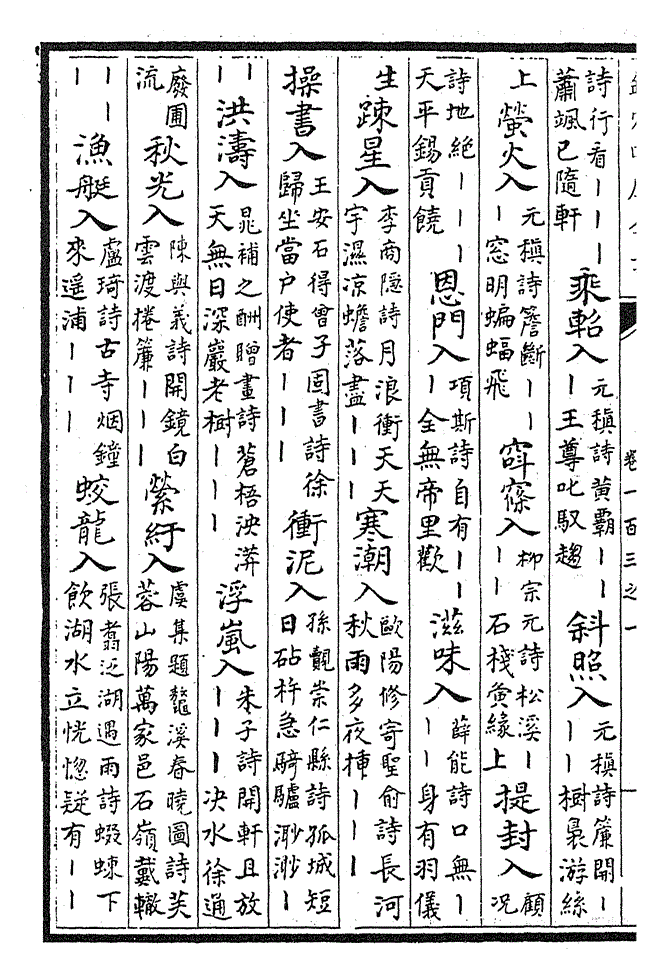 卷一百三之一
詩行看｜｜｜蕭颯已隨軒 乘軺入 元稹詩黄霸｜｜｜王尊叱馭趨 斜照入 元稹詩簾開｜｜｜樹裊游絲
上 螢火入 元稹詩簷斷｜｜｜窓明蝙蝠飛 窅窱入 柳宗元詩松溪｜｜｜石棧夤緣上 提封入 顧况
詩地絶｜｜｜天平錫貢饒 恩門入 項斯詩自有｜｜｜全無帝里歡 滋味入 薛能詩口無｜｜｜身有羽儀
生 踈星入 李商隱詩月浪衝天天宇濕凉蟾落盡｜｜｜ 寒潮入 歐陽修寄聖俞詩長河秋雨多夜揷｜｜｜
操書入 王安石得曾子固書詩徐歸坐當户使者｜｜｜ 衝泥入 孫覿崇仁縣詩孤城短日砧杵急騎驢渺渺｜
｜｜ 洪濤入 晁補之酬贈畫詩蒼梧泱漭天無日深巖老樹｜｜｜ 浮嵐入 朱子詩開軒且放｜｜｜决水徐通
廢圃流 秋光入 陳與義詩開鏡白雲渡捲簾｜｜｜ 縈紆入 虞集題鼇溪春曉圖詩芙蓉山陽萬家邑石嶺戴轍
｜｜｜ 漁艇入 盧琦詩古寺烟鐘來遥浦｜｜｜ 蛟龍入 張翥泛湖遇雨詩蝃蝀下飲湖水立恍惚疑有｜｜